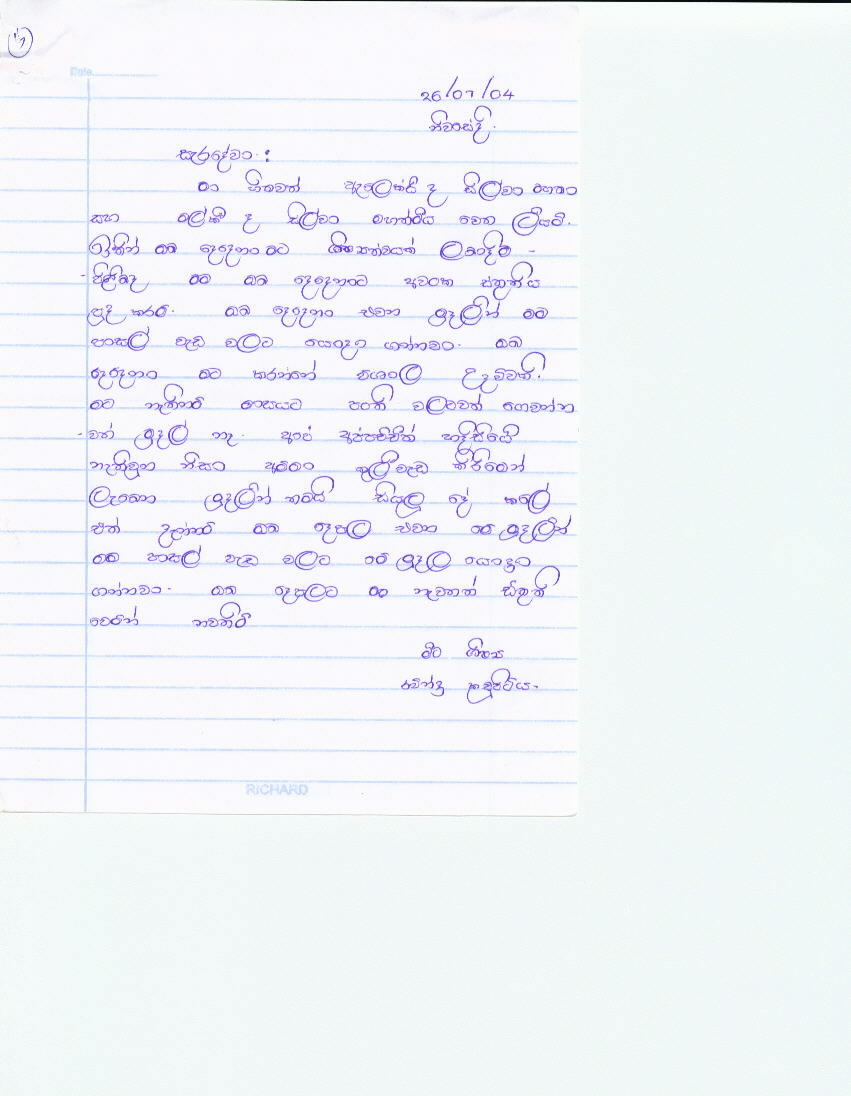 Date
26/07/04
නිවසේදී.
සැරදේවා. :
මා හිතවත් ඇලෙක්සි ද සිල්වා මහතා
සහ ලේකී ද සිල්වා මහත්මිය වෙත ලියමි.
ඉතින් ඔබ දෙදෙනා මට ශිෂ්‍යත්වයක් ලබාදීම -
- පිළිබඳ මම ඔබ දෙදෙනාට අවංක ස්තූතිය
පුද කරමි. ඔබ දෙදෙනා එවන මුදලින් මම
පාසල් වැඩ වලට යොදා ගන්නවා. ඔබ
දෙදෙනා මට කරන්නේ විශාල උදව්වකි.
මට නැතිනම් මාසයට පංති වලටවත් ගෙවන්න
- වත් මුදල් නෑ. අපේ අප්පච්චිත් හදිසියේ
නැතිවුන නිසා අම්මා කුලී වැඩ කිරීමෙන්
ලැබෙන මුදලින් තමයි සියලු දේ කලේ
එත් දැන්නම් ඔබ දෙපල එවන මේ මුදලින්
මම පාසල් වැඩ වලට මේ මුදල යොදා
ගන්නවා. ඔබ දෙපලට මම නැවතත් ස්තුති
වෙමින් නවතිමි
මීට ශිෂ්‍ය
රවින්ද්‍ර
RICHARD